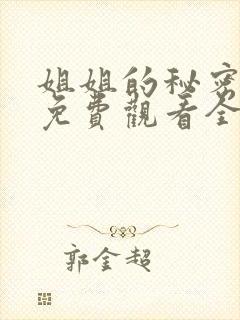 姐姐的秘密
免費觀看全
郭金超